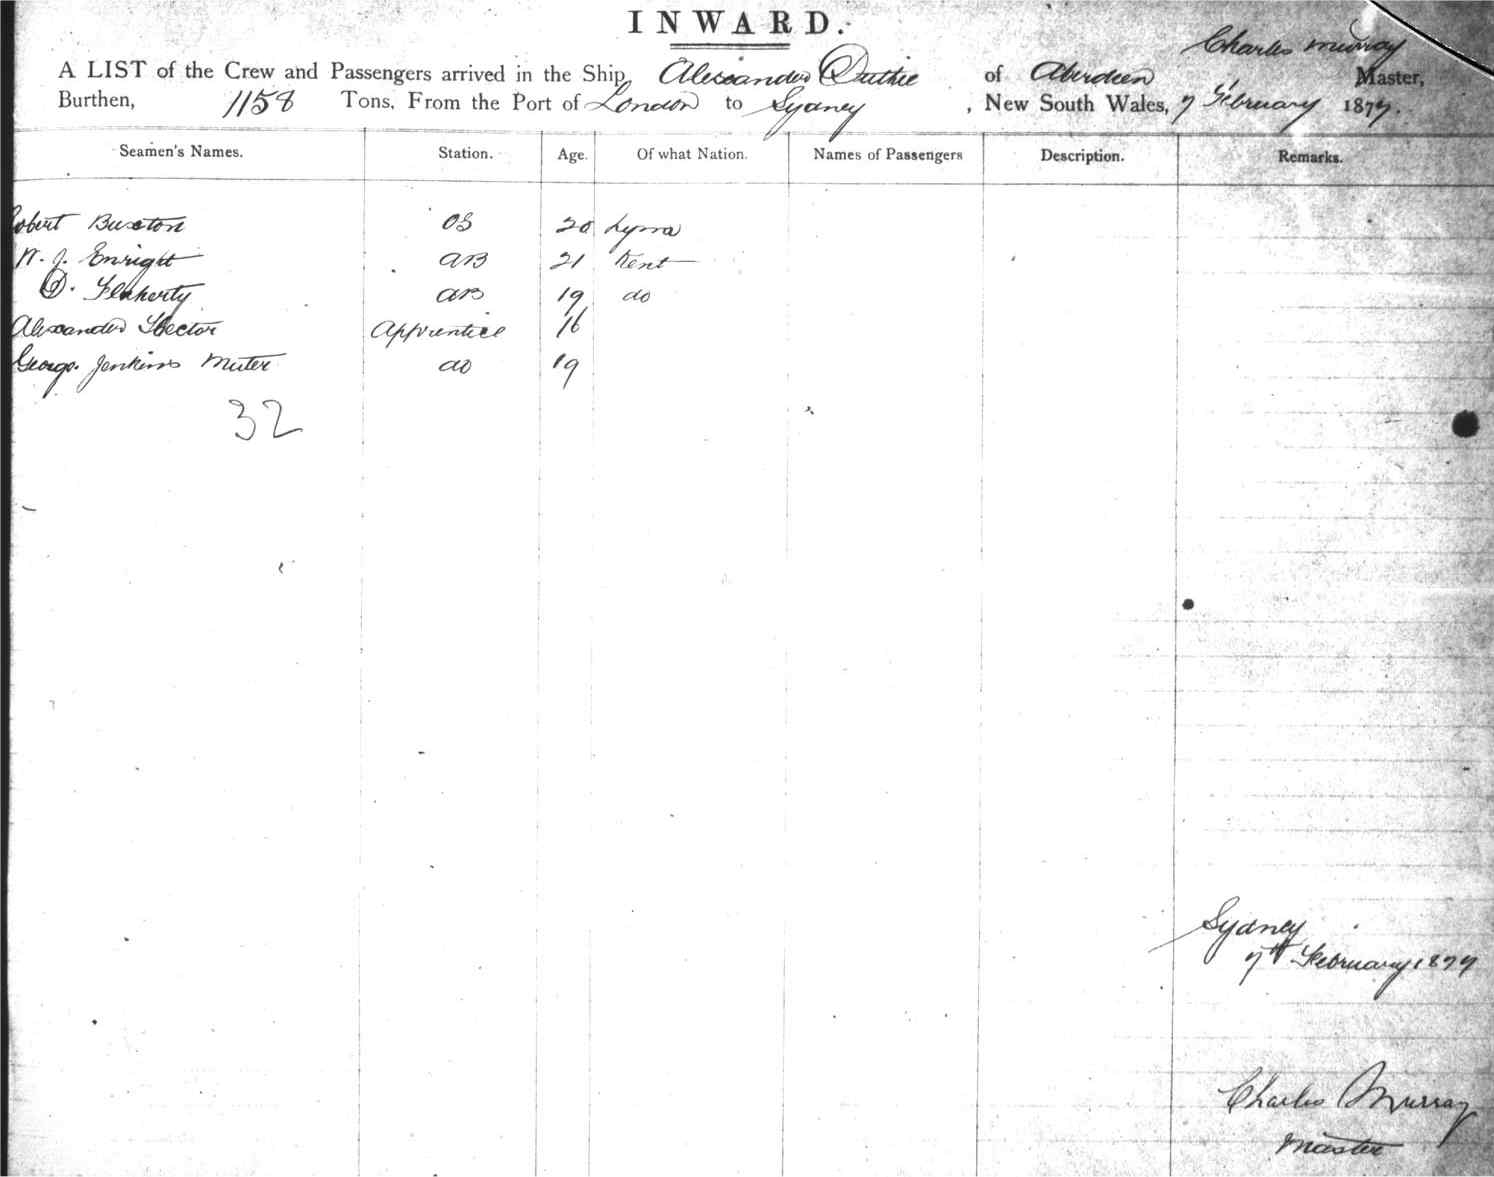 INWARD.
Charles Murray
A LIST of the Crew and Passengers arrived in the Ship, Alexander Duthie of Aberdeen Master,
Burthen, 1158 Tons, From the Port of London to Sydney, New South Wales, 7 February 1877.
Seamen's Names. Station. Age. Of what Nation. Names of Passengers Description. Remarks.
obert Buxton OS 20 Lynn
W. J. Enright AB 21 Kent
D. Flaherty AB 19 do
Alexander Hector Apprentice 16
George Jenkins Muter do 19
32
Sydney
7th February 1877
Charles Murray
Master